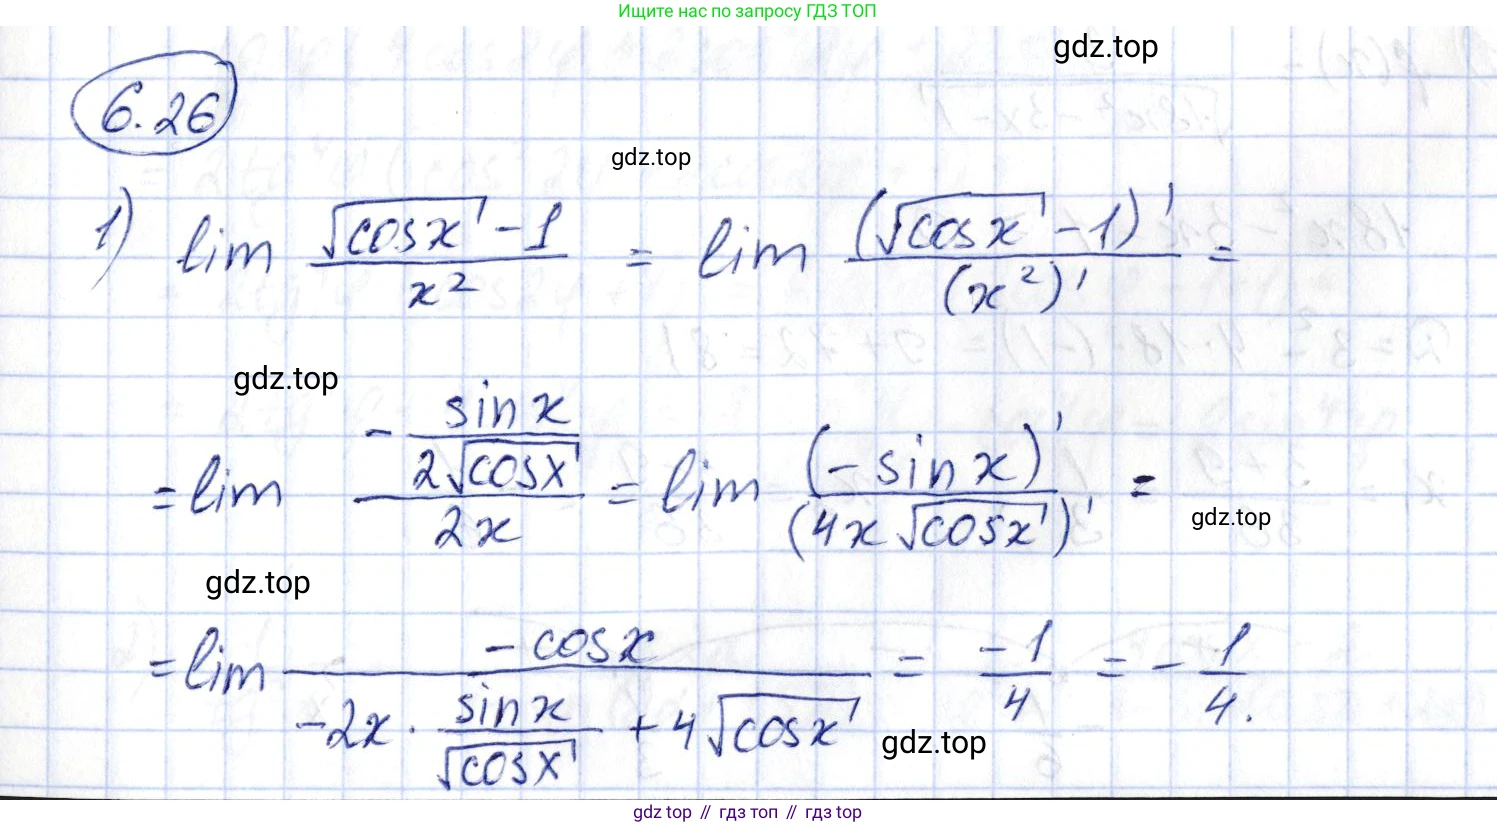 Ищите нас по запросу ГДЗ ТОП
gdz.top
6.26
gdz.top
1) lim (√cosx - 1)/x² = lim (√cosx - 1)'/(x²)' =
gdz.top
= lim (- sinx/(2√cosx))/(2x) = lim (-sinx)'/(4x√cosx)' =
gdz.top
gdz.top
= lim (-cosx)/(-2x · sinx/√cosx + 4√cosx) = -1/4 = -1/4.
gdz.top
gdz.top // гдз топ // гдз top